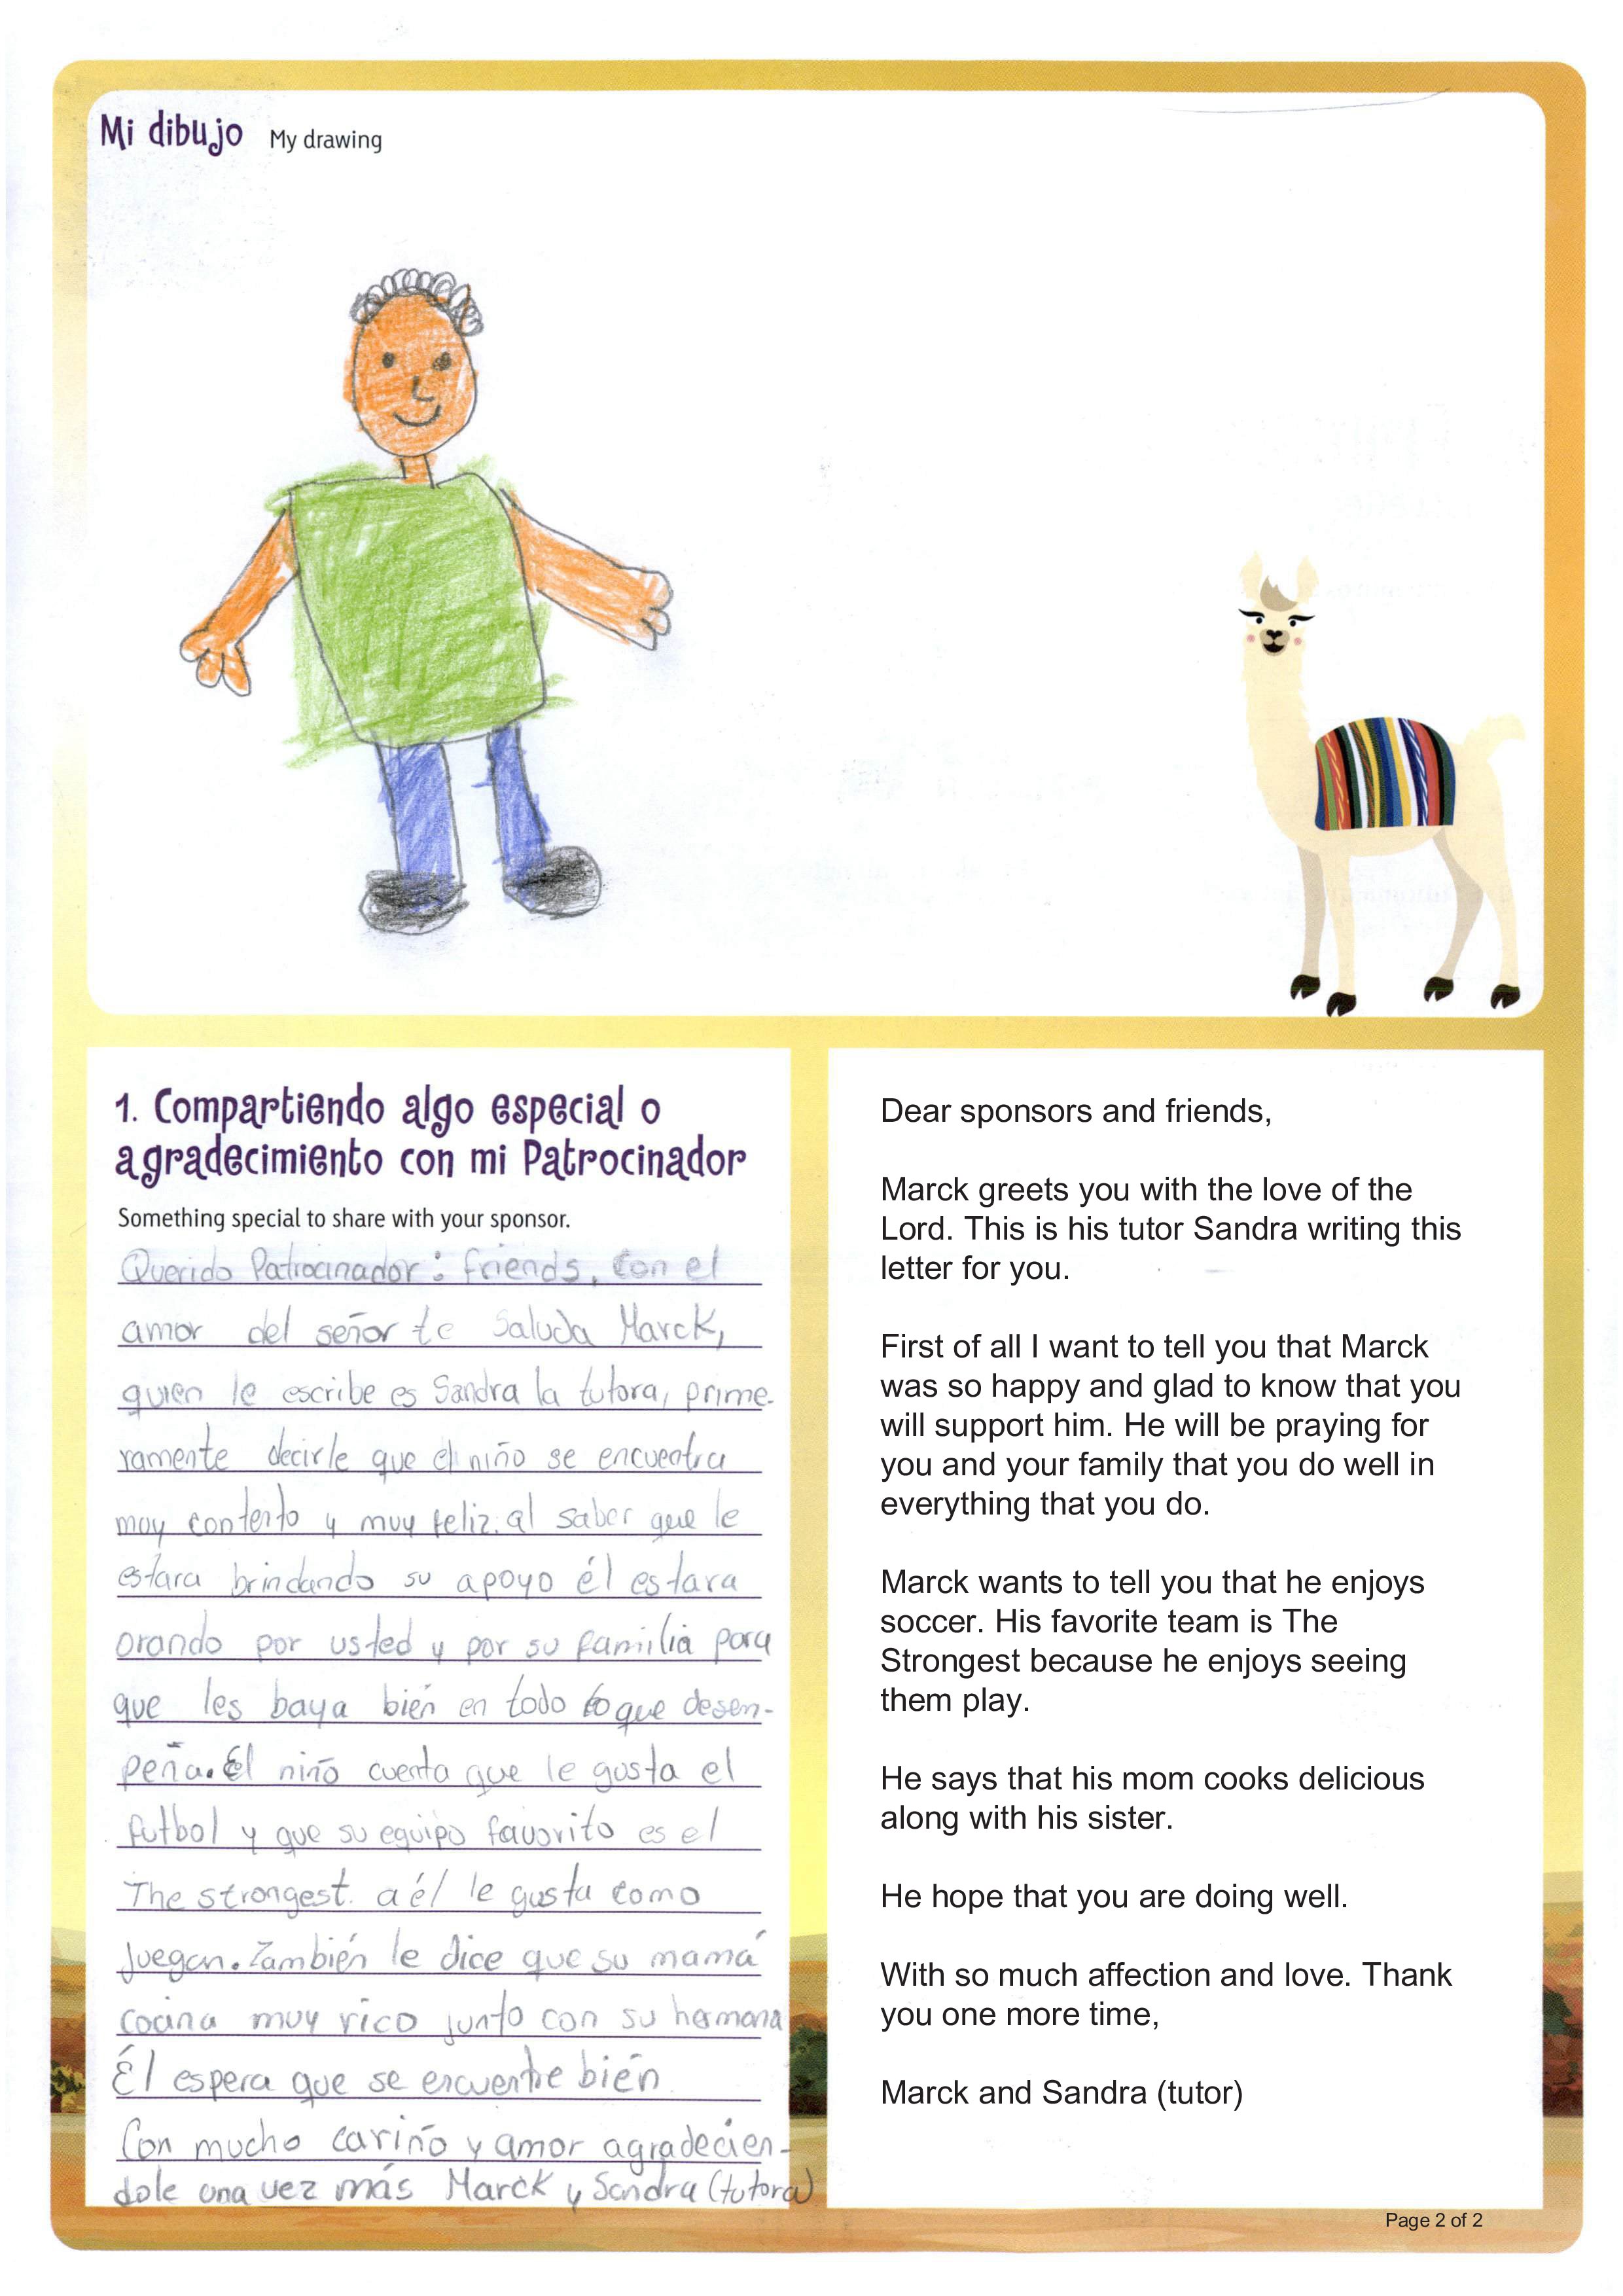 Mi dibujo My drawing
1. Compartiendo algo especial o
agradecimiento con mi Patrocinador
Something special to share with your sponsor.
Querido Patrocinador: friends, con el
amor del señor te Saluda Marck,
quien le escribe es Sandra la tutora, prime-
ramente decirle que el niño se encuentra
muy contento y muy feliz. al saber que le
estara brindando su apoyo él estara
orando por usted y por su familia para
que les baya bién en todo lo que desen-
peña. El niño cuenta que le gusta el
futbol y que su equipo favorito es el
The strongest. a él le gusta como
Juegan. También le dice que su mamá
cocina muy rico junto con su hermana
Él espera que se encuentre bién
Con mucho cariño y amor agradecien-
dole una vez más Marck y Sandra (tutora)
Dear sponsors and friends,
Marck greets you with the love of the
Lord. This is his tutor Sandra writing this
letter for you.
First of all I want to tell you that Marck
was so happy and glad to know that you
will support him. He will be praying for
you and your family that you do well in
everything that you do.
Marck wants to tell you that he enjoys
soccer. His favorite team is The
Strongest because he enjoys seeing
them play.
He says that his mom cooks delicious
along with his sister.
He hope that you are doing well.
With so much affection and love. Thank
you one more time,
Marck and Sandra (tutor)
Page 2 of 2